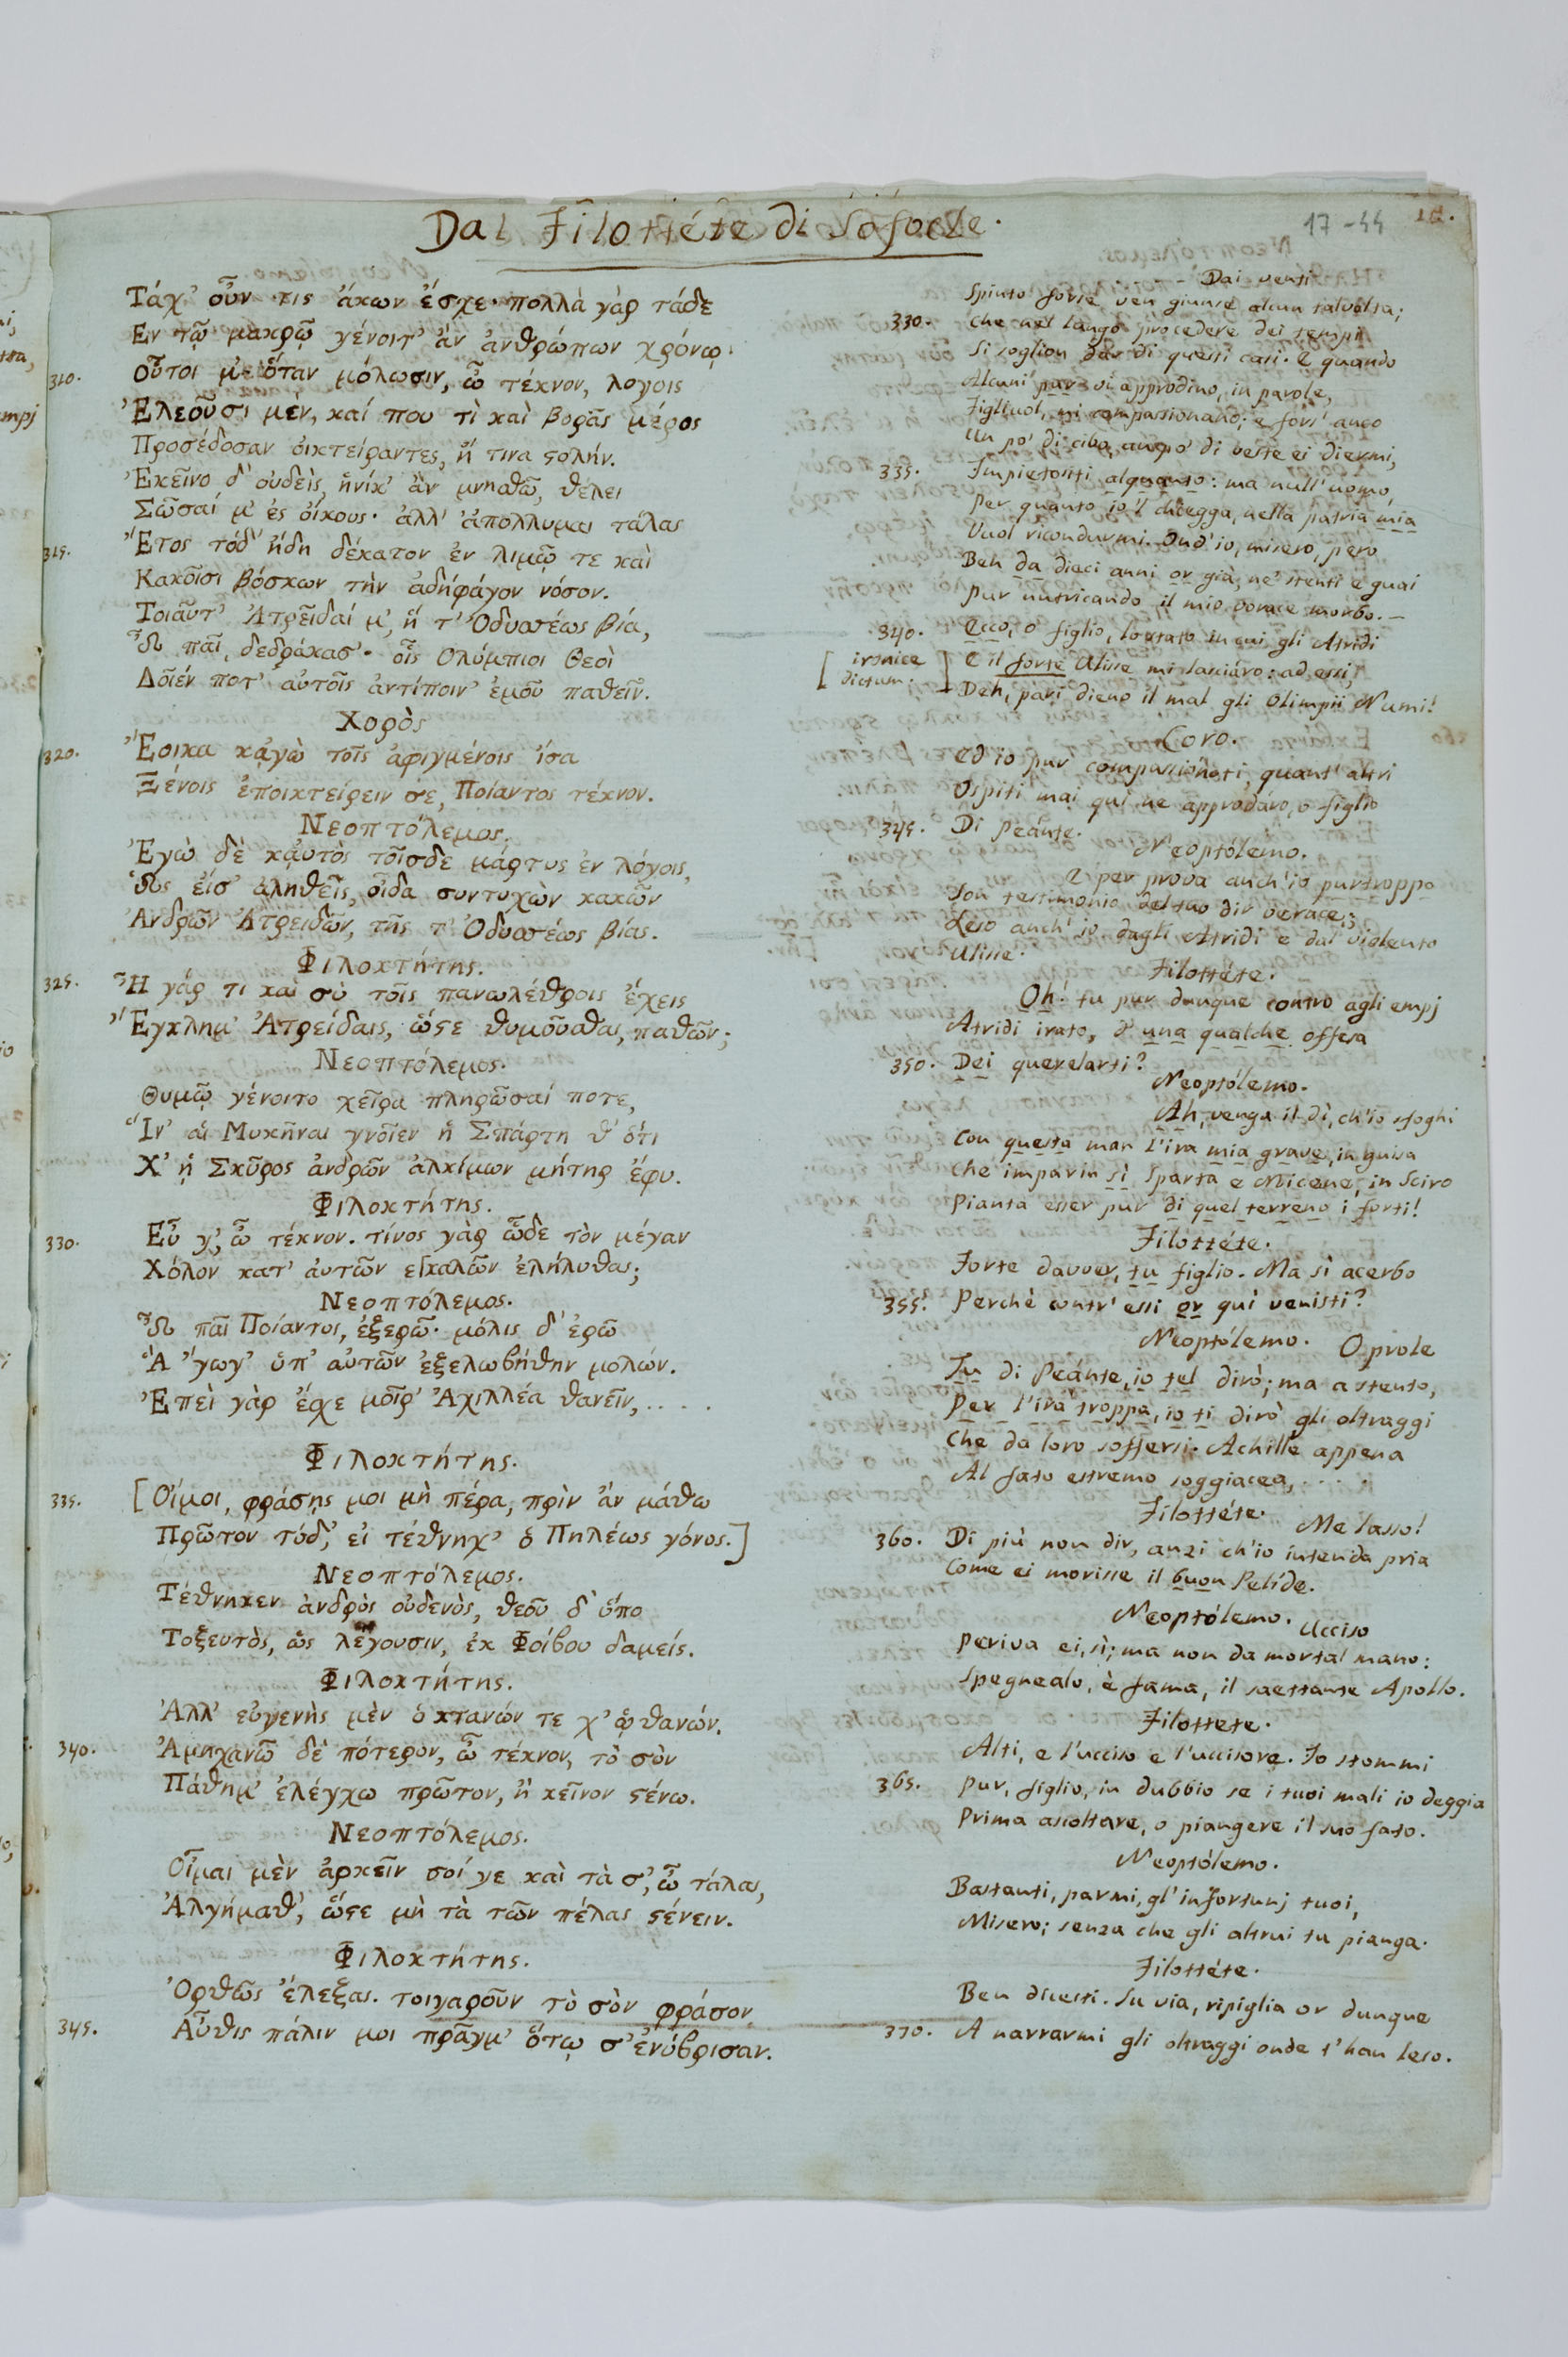 Dal Filottéte di Sofocle.
17-44
Τάχ' οὖν τις ἄκων ἔσχε· πολλὰ γὰρ τάδε
Ἐν τῷ μακρῷ γένοιτ' ἂν ἀνθρώπων χρόνῳ·
310. Οὗτοι μ' ὅταν μόλωσιν, ὦ τέκνον, λογοις
Ἐλεοῦσι μέν, καί που τὶ καὶ βορᾶς μέρος
Προσέδοσαν οἰκτείραντες, ἤ τινα ϛολήν.
Ἐκεῖνο δ' οὐδεὶς, ἡνίκ' ἂν μνησθῶ, θέλει
Σῶσαί μ' ἐς οἴκους· ἀλλ' ἀπολλυμαι τάλας
315. Ἔτος τόδ' ἤδη δέκατον ἐν λιμῷ τε καὶ
Κακοῖσι βόσκων τὴν ἀδηφάγον νόσον.
Τοιαῦτ' Ἀτρεῖδαί μ', ἥ τ' Ὀδυσσέως βία,
Ὦ παῖ, δεδράκασ'· οἷς Ολύμπιοι Θεοὶ
Δοῖέν ποτ' αὐτοῖς ἀντίποιν' ἐμοῦ παθεῖν.
Χορὸς
320. Ἔοικα κἀγὼ τοῖς ἀφιγμένοις ἴσα
Ξένοις ἐποικτείρειν σε, Ποίαντος τέκνον.
Νεοπτόλεμος.
Ἐγὼ δὲ καὐτὸς τοῖσδε μάρτυς ἐν λόγοις,
Ὡς εἴσ' ἀληθεῖς, οἶδα συντυχὼν κακῶν
Ἀνδρῶν Ἀτρειδῶν, τῆς τ' Ὀδυσσέως βίας.
Φιλοκτήτης.
325. Ἦ γάρ τι καὶ σὺ τοῖς πανωλέθροις ἔχεις
Ἔγκλημ' Ἀτρείδαις, ὥϛε θυμοῦσθαι, παθῶν;
Νεοπτόλεμος.
Θυμῷ γένοιτο χεῖρα πληρῶσαί ποτε,
Ἵν' αἱ Μυκῆναι γνοῖεν ἡ Σπάρτη θ' ὅτι
Χ' ἡ Σκῦρος ἀνδρῶν ἀλκίμων μήτηρ ἔφυ.
Φιλοκτήτης.
330. Εὖ γ', ὦ τέκνον. τίνος γὰρ ὧδε τὸν μέγαν
Χόλον κατ' αὐτῶν ἐγκαλῶν ἐλήλυθας;
Νεοπτόλεμος.
Ὦ παῖ Ποίαντος, ἐξερῶ· μόλις δ' ἐρῶ
Ἃ 'γωγ' ὑπ' αὐτῶν ἐξελωβήθην μολών.
Ἐπεὶ γὰρ ἔσχε μοῖρ' Ἀχιλλέα θανεῖν, . . . . .
Φιλοκτήτης.
335. [Οἴμοι, φράσῃς μοι μὴ πέρα, πρὶν ἂν μάθω
Πρῶτον τόδ', εἰ τέθνηχ' ὁ Πηλέως γόνος.]
Νεοπτόλεμος.
Τέθνηκεν ἀνδρὸς οὐδενὸς, θεοῦ δ' ὕπο
Τοξευτὸς, ὡς λέγουσιν, ἐκ Φοίβου δαμείς.
Φιλοκτήτης.
Ἀλλ' εὐγενὴς μὲν ὁ κτανών τε χ' ὡ θανών.
340. Ἀμηχανῶ δὲ πότερον, ὦ τέκνον, τὸ σὸν
Πάθημ' ἐλέγχω πρῶτον, ἢ κεῖνον ϛένω.
Νεοπτόλεμος.
Οἶμαι μὲν ἀρκεῖν σοί γε καὶ τὰ σ', ὦ τάλας,
Ἀλγήμαθ', ὥϛε μὴ τὰ τῶν πέλας ϛένειν.
Φιλοκτήτης.
Ὀρθῶς ἔλεξας. τοιγαροῦν τὸ σὸν φράσον
345. Αὖθις πάλιν μοι πρᾶγμ' ὅτῳ σ' ἐνύβρισαν.
- Dai venti
Spinto forse ven giunse alcun talvolta;
330. Che nel lungo procedere dei tempi
Si soglion dar di questi casi. E quando
Alcuni pur vi approdino, in parole,
Figliuol, mi compassionano; e fors' anco
Un po' di cibo, anzpo' di veste ei diermi,
335. Impietositi alquanto: ma null' uomo,
Per quanto io 'l chiegga, nella patria mia
Vuol ricondurmi. Ond' io, misero, pero
Ben da dieci anni or già, ne' stenti e guai
Pur nutricando il mio vorace morbo. —
340. Ecco, o figlio, lo stato in cui gli Atridi
[ironice dictum.] E il forte Ulisse mi lasciáro: ad essi,
Deh, pari dieno il mal gli Olimpii Numi!
Coro.
Ed io pur compassionoti, quant' altri
Ospiti mai quì ne approdaro, o figlio
345. Di Peánte.
Neoptólemo.
E per prova anch' io purtroppo
Son testimonio del tuo dir verace;
Leso anch' io dagli Atridi e dal violento
Ulisse.
Filottéte.
Oh! tu pur dunque contro agli empj
Atridi irato, d' una qualche offesa
350. Dei querelarti?
Neoptólemo.
Ah, venga il dì, ch' io sfoghi
Con questa man l'ira mia grave, in guisa
Che imparin sì Sparta e Micene, in Sciro
Pianta esser pur di quel terreno i forti!
Filottéte.
Forte davver, tu figlio. Ma sì acerbo
355. Perchè contr' essi or quì venisti?
Neoptólemo. O prole
Tu di Peánte, io tel dirò; ma a stento,
Per l'ira troppa, io ti dirò gli oltraggi
Che da loro soffersi. Achille appena
Al fato estremo soggiacea, . . . . .
Filottéte. Me lasso!
360. Di più non dir, anzi ch' io intenda pria
Come ei morisse il buon Pelíde.
Neoptólemo. Ucciso
Periva ei, sì; ma non da mortal mano:
Spegnealo, è fama, il saettante Apollo.
Filottete.
Alti, e l'ucciso e l'uccisore. Io stommi
365. Pur, figlio, in dubbio se i tuoi mali io deggia
Prima ascoltare, o piangere il suo fato.
Neoptólemo.
Bastanti, parmi, gl' infortunj tuoi,
Misero; senza che gli altrui tu pianga.
Filottéte.
Ben dicesti. Su via, ripiglia or dunque
370. A narrarmi gli oltraggi onde t' han leso.